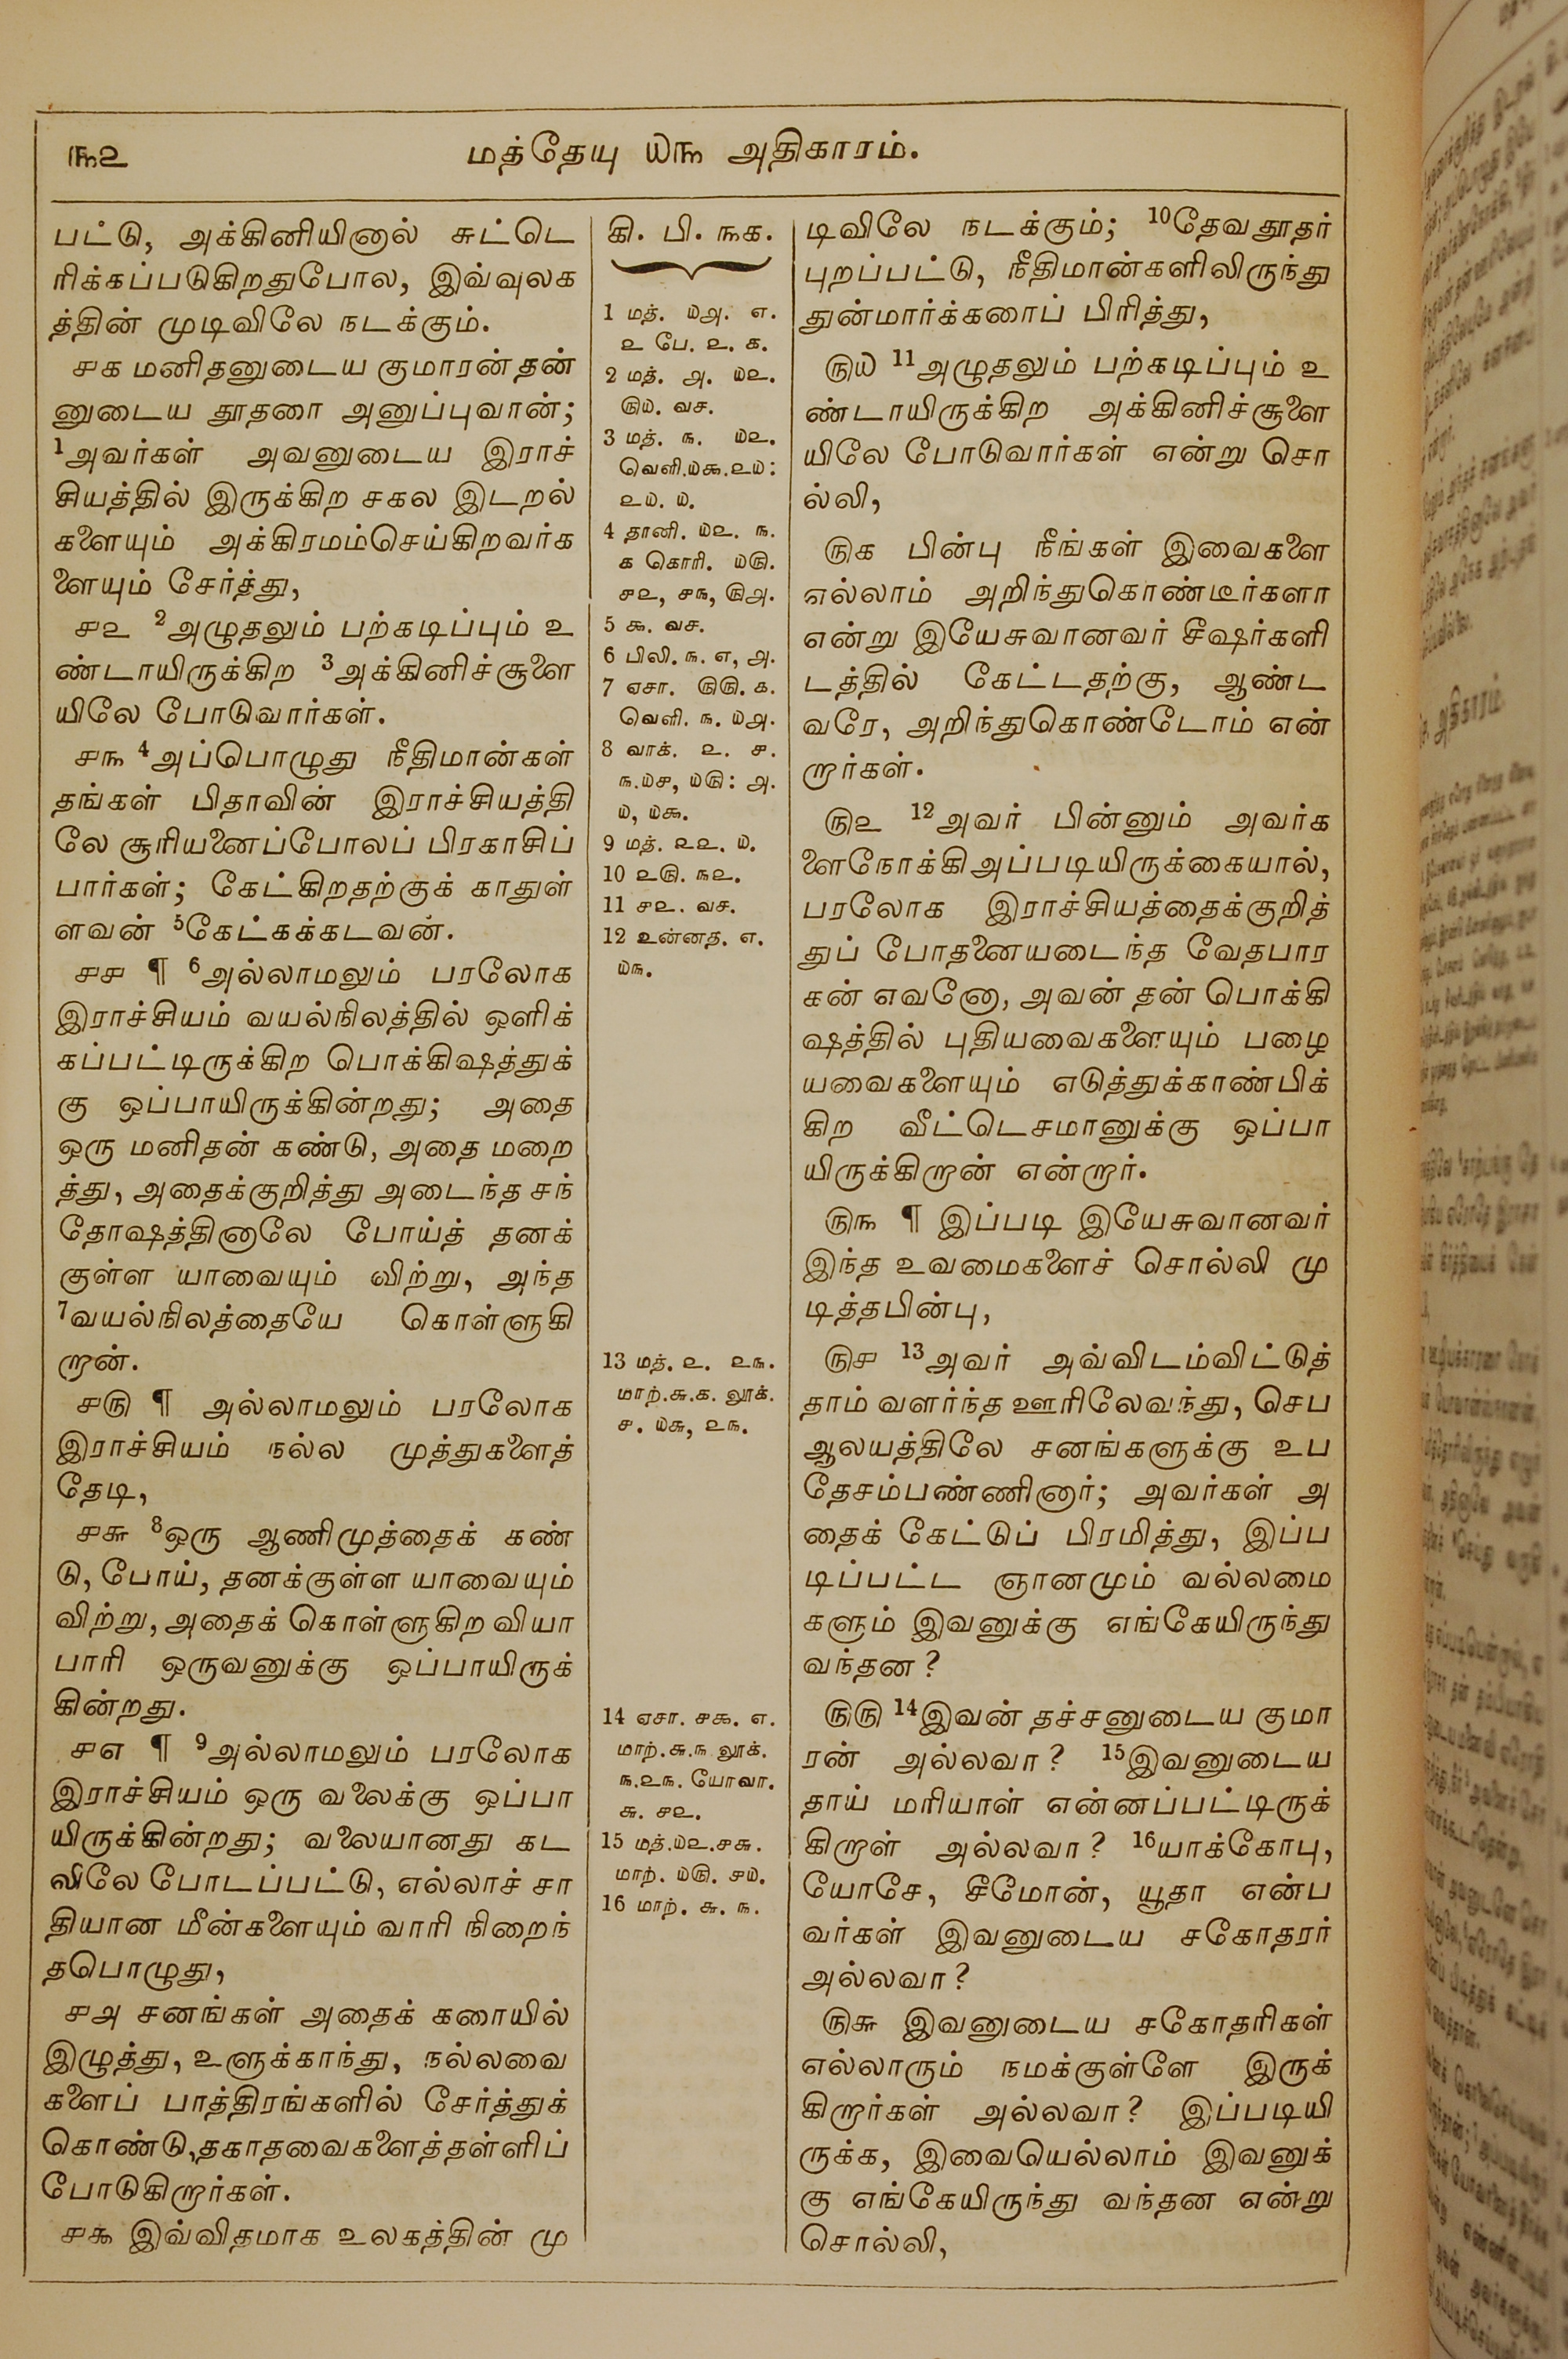 ௩௨
மத்தேயு ௰௩ அதிகாரம்.
பட்டு, அக்கினியினால் சுட்டெ
ரிக்கப்படுகிறதுபோல, இவ்வுலக
த்தின் முடிவிலே நடக்கும்.
௪௧ மனிதனுடைய குமாரன் தன்
னுடைய தூதரை அனுப்புவான்;
1அவர்கள் அவனுடைய இராச்
சியத்தில் இருக்கிற சகல இடறல்
களையும் அக்கிரமம்செய்கிறவர்க
ளையும் சேர்த்து,
௪௨ 2அழுதலும் பற்கடிப்பும் உ
ண்டாயிருக்கிற 3அக்கினிச்சூளை
யிலே போடுவார்கள்.
௪௩ 4அப்பொழுது நீதிமான்கள்
தங்கள் பிதாவின் இராச்சியத்தி
லே சூரியனைப்போலப் பிரகாசிப்
பார்கள்; கேட்கிறதற்குக் காதுள்
ளவன் 5கேட்கக்கடவன்.
௪௪ ¶ 6அல்லாமலும் பரலோக
இராச்சியம் வயல்நிலத்தில் ஒளிக்
கப்பட்டிருக்கிற பொக்கிஷத்துக்
கு ஒப்பாயிருக்கின்றது; அதை
ஒரு மனிதன் கண்டு, அதை மறை
த்து, அதைக்குறித்து அடைந்த சந்
தோஷத்தினாலே போய்த் தனக்
குள்ள யாவையும் விற்று, அந்த
7வயல்நிலத்தையே கொள்ளுகி
றான்.
௪௫ ¶ அல்லாமலும் பரலோக
இராச்சியம் நல்ல முத்துகளைத்
தேடி,
௪௬ 8ஒரு ஆணிமுத்தைக் கண்
டு, போய், தனக்குள்ள யாவையும்
விற்று, அதைக் கொள்ளுகிற வியா
பாரி ஒருவனுக்கு ஒப்பாயிருக்
கின்றது.
௪௭ ¶ 9அல்லாமலும் பரலோக
இராச்சியம் ஒரு வலைக்கு ஒப்பா
யிருக்கின்றது; வலையானது கட
லிலே போடப்பட்டு, எல்லாச் சா
தியான மீன்களையும் வாரி நிறைந்
தபொழுது,
௪௮ சனங்கள் அதைக் கரையில்
இழுத்து, உளுக்காந்து, நல்லவை
களைப் பாத்திரங்களில் சேர்த்துக்
கொண்டு,தகாதவைகளைத்தள்ளிப்
போடுகிறார்கள்.
௪௯ இவ்விதமாக உலகத்தின் மு
கி. பி. ௩௧.
1 மத். ௰௮. ௭.
௨ பே. ௨. ௧.
2 மத். ௮. ௰௨.
௫௰. வச.
3 மத். ௩. ௰௨.
வெளி.௰௯.௨௰:
௨௰. ௰.
4 தானி. ௰௨. ௩.
௧ கொரி. ௰௫.
௪௨, ௪௩, ௫௮.
5 ௯. வச.
6 பிலி. ௩. ௭, ௮.
7 ஏசா. ௫௫. ௧.
வெளி. ௩. ௰௮.
8 வாக். ௨. ௪.
௩.௰௪, ௰௫: ௮.
௰, ௰௯.
9 மத். ௨௨. ௰.
10 ௨௫. ௩௨.
11 ௪௨. வச.
12 உன்னத. ௭.
௰௩.
13 மத். ௨. ௨௩.
மாற்.௬.௧. லூக்.
௪. ௰௬, ௨௩.
14 ஏசா. ௪௯. ௭.
மாற்.௬.௩ லூக்.
௩.௨௩. யோவா.
௬. ௪௨.
15 மத்.௰௨.௪௬.
மாற். ௰௫. ௪௰.
16 மாற். ௬. ௩.
டிவிலே நடக்கும்; 10தேவதூதர்
புறப்பட்டு, நீதிமான்களிலிருந்து
துன்மார்க்கரைப் பிரித்து,
௫௰ 11அழுதலும் பற்கடிப்பும் உ
ண்டாயிருக்கிற அக்கினிச்சூளை
யிலே போடுவார்கள் என்று சொ
ல்லி,
௫௧ பின்பு நீங்கள் இவைகளை
எல்லாம் அறிந்துகொண்டீர்களா
என்று இயேசுவானவர் சீஷர்களி
டத்தில் கேட்டதற்கு, ஆண்ட
வரே, அறிந்துகொண்டோம் என்
றார்கள்.
௫௨ 12அவர் பின்னும் அவர்க
ளைநோக்கிஅப்படியிருக்கையால்,
பரலோக இராச்சியத்தைக்குறித்
துப் போதனையடைந்த வேதபார
கன் எவனோ, அவன் தன் பொக்கி
ஷத்தில் புதியவைகளையும் பழை
யவைகளையும் எடுத்துக்காண்பிக்
கிற வீட்டெசமானுக்கு ஒப்பா
யிருக்கிறான் என்றார்.
௫௩ ¶ இப்படி இயேசுவானவர்
இந்த உவமைகளைச் சொல்லி மு
டித்தபின்பு,
௫௪ 13அவர் அவ்விடம்விட்டுத்
தாம் வளர்ந்த ஊரிலேவந்து, செப
ஆலயத்திலே சனங்களுக்கு உப
தேசம்பண்ணினார்; அவர்கள் அ
தைக் கேட்டுப் பிரமித்து, இப்ப
டிப்பட்ட ஞானமும் வல்லமை
களும் இவனுக்கு எங்கேயிருந்து
வந்தன?
௫௫ 14இவன் தச்சனுடைய குமா
ரன் அல்லவா? 15இவனுடைய
தாய் மரியாள் என்னப்பட்டிருக்
கிறாள் அல்லவா? 16யாக்கோபு,
யோசே, சீமோன், யூதா என்ப
வர்கள் இவனுடைய சகோதரர்
அல்லவா?
௫௬ இவனுடைய சகோதரிகள்
எல்லாரும் நமக்குள்ளே இருக்
கிறார்கள் அல்லவா? இப்படியி
ருக்க, இவையெல்லாம் இவனுக்
கு எங்கேயிருந்து வந்தன என்று
சொல்லி,